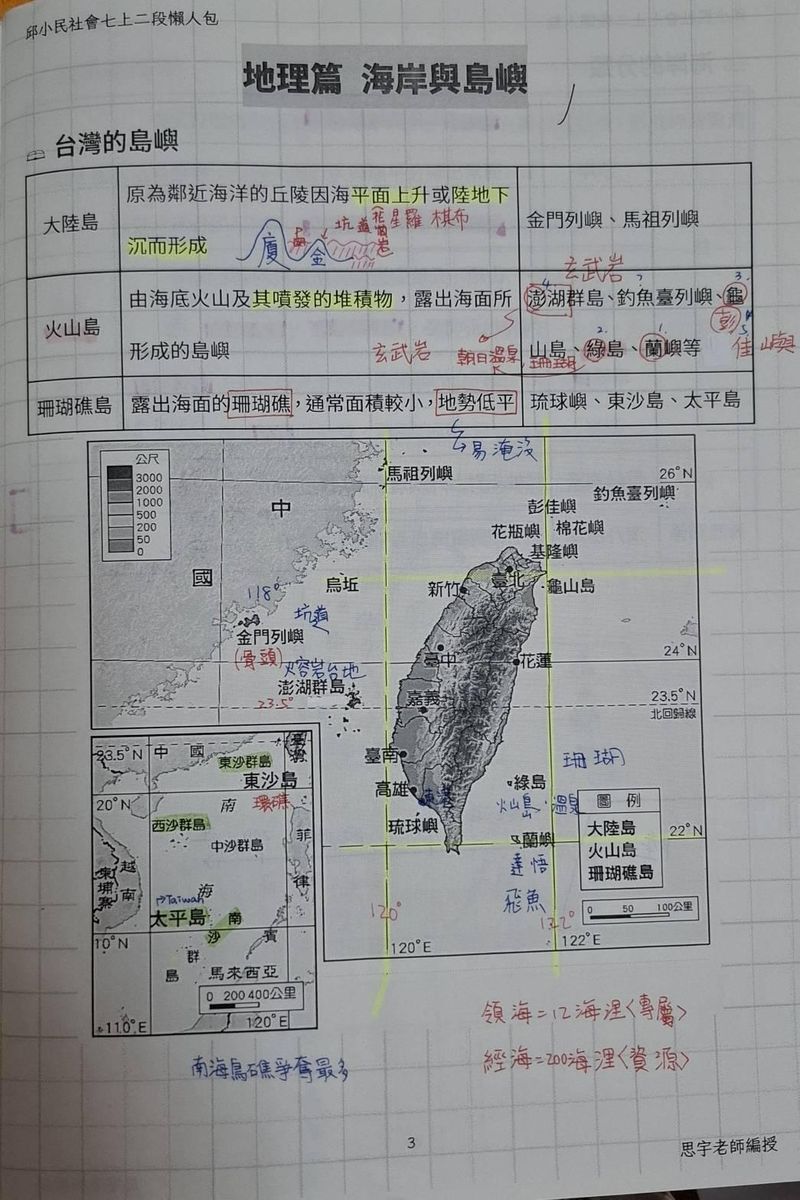 邱小民社會七上二段懶人包
地理篇 海岸與島嶼
台灣的島嶼
大陸島
原為鄰近海洋的丘陵因海平面上升或陸地下
沉而形成
金門列嶼、馬祖列嶼
坑道
花崗岩
星羅棋布
廈
金
玄武岩
火山島
由海底火山及其噴發的堆積物，露出海面所
形成的島嶼
澎湖群島、釣魚臺列嶼、龜
山島、綠島、蘭嶼等
4.
3.
2.
1.
彭
佳嶼
玄武岩
朝日溫泉
珊瑚
珊瑚礁島
露出海面的珊瑚礁，通常面積較小，地勢低平
琉球嶼、東沙島、太平島
易淹沒
公尺
3000
2000
1000
500
200
50
0
中
國
馬祖列嶼
26°N
釣魚臺列嶼
彭佳嶼
花瓶嶼
棉花嶼
基隆嶼
烏坵
新竹
臺北
龜山島
118°
坑道
金門列嶼
(骨頭)
熔岩台地
澎湖群島
23.5°
臺中
花蓮
24°N
嘉義
23.5°N
北回歸線
臺南
高雄
東港
琉球嶼
珊瑚
綠島
火山島、溫泉
蘭嶼
達悟
飛魚
22°N
圖 例
大陸島
火山島
珊瑚礁島
0 50 100公里
120°
122°
120°E
122°E
23.5°N
中 國
臺灣
東沙群島
東沙島
20°N
南
環礁
西沙群島
中沙群島
菲
律
賓
越南
柬埔寨
海
Taiwan
太平島
南
沙
群
島
10°N
馬來西亞
0 200 400公里
110°E
120°E
南海島礁爭奪最多
領海=12海浬<專屬>
經海=200海浬<資源>
3
思宇老師編授